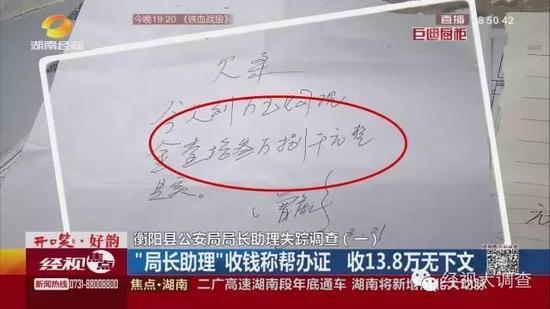 今晚19:20《铁血战狼》
直播
18:50:42
湖南经视
巨迪厨柜
欠条
金壹拾叁万捌千元整
是实。
衡阳县公安局局长助理失踪调查(一)
开口笑·好韵
经视焦点
"局长助理"收钱称帮办证 收13.8万无下文
新闻热线:0731-88008800
焦点·湖南
二广高速湖南段年底通车 湖南将新增
大动脉
经视大调查